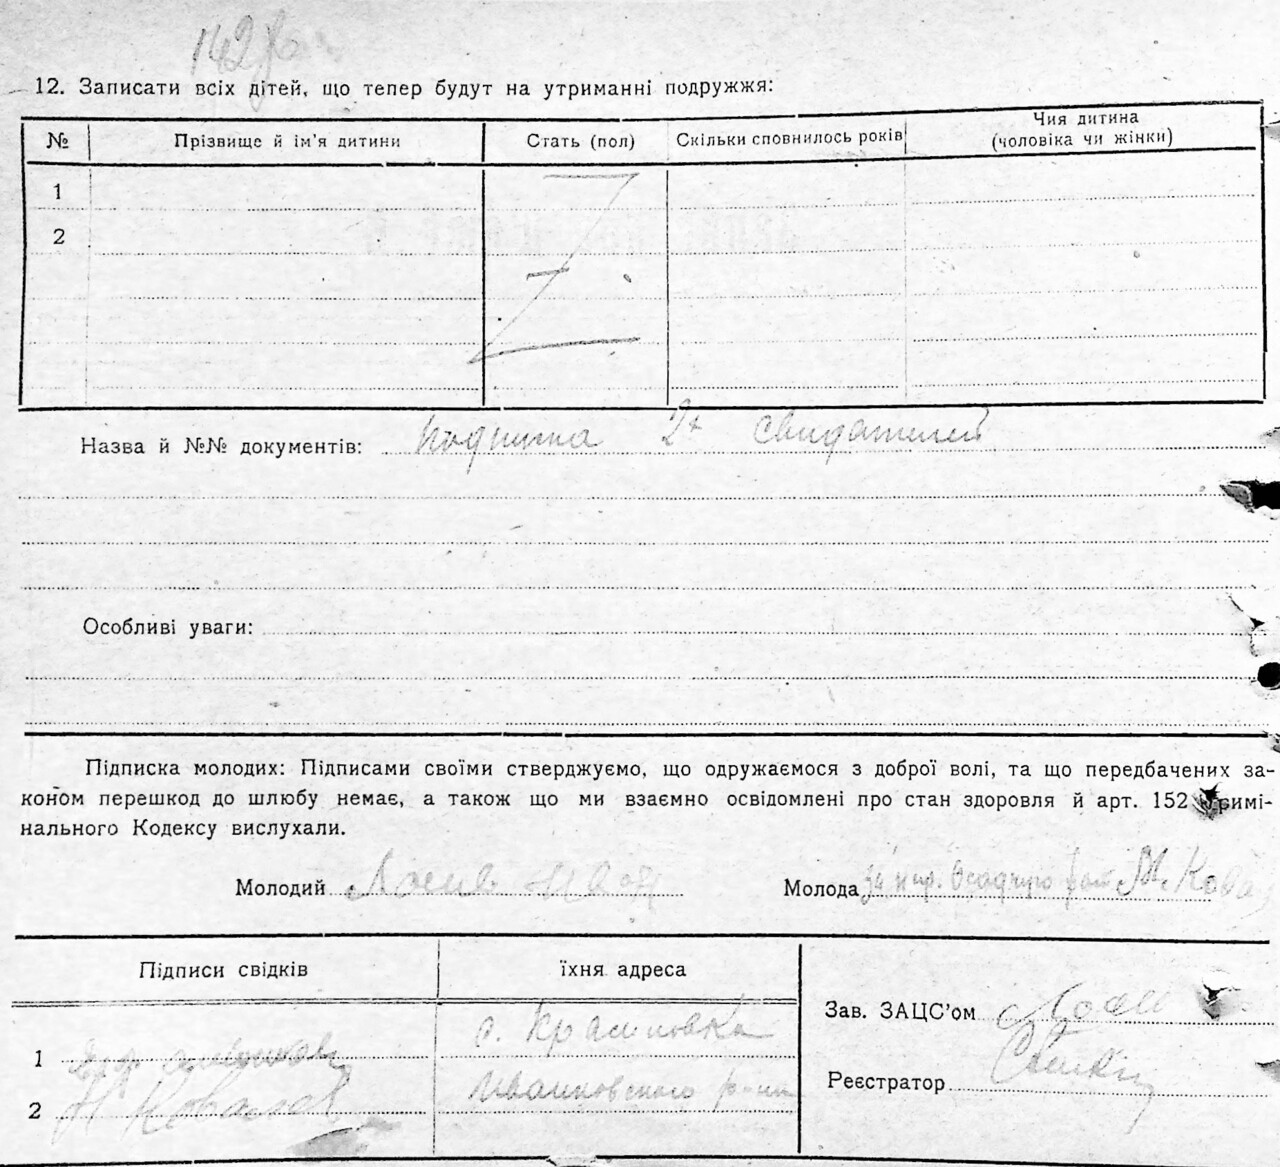 142
12. Записати всіх дітей, що тепер будут на утриманні подружжя:
№ Прізвище й ім'я дитини Стать (пол) Скільки сповнилось років Чия дитина (чоловіка чи жінки)
1
2
Назва й №№ документів: подписка 2х свидетелей
Особливі уваги:
Підписка молодих: Підписами своїми стверджуємо, що одружаємося з доброї волі, та що передбачених за-
коном перешкод до шлюбу немає, а також що ми взаємно освідомлені про стан здоровля й арт. 152 Кримі-
нального Кодексу вислухали.
Молодий Молода
Підписи свідків їхня адреса
Зав. ЗАЦС'ом
1 с. Красиловка
Реєстратор
2 Н Ковалев Ивановского р-на